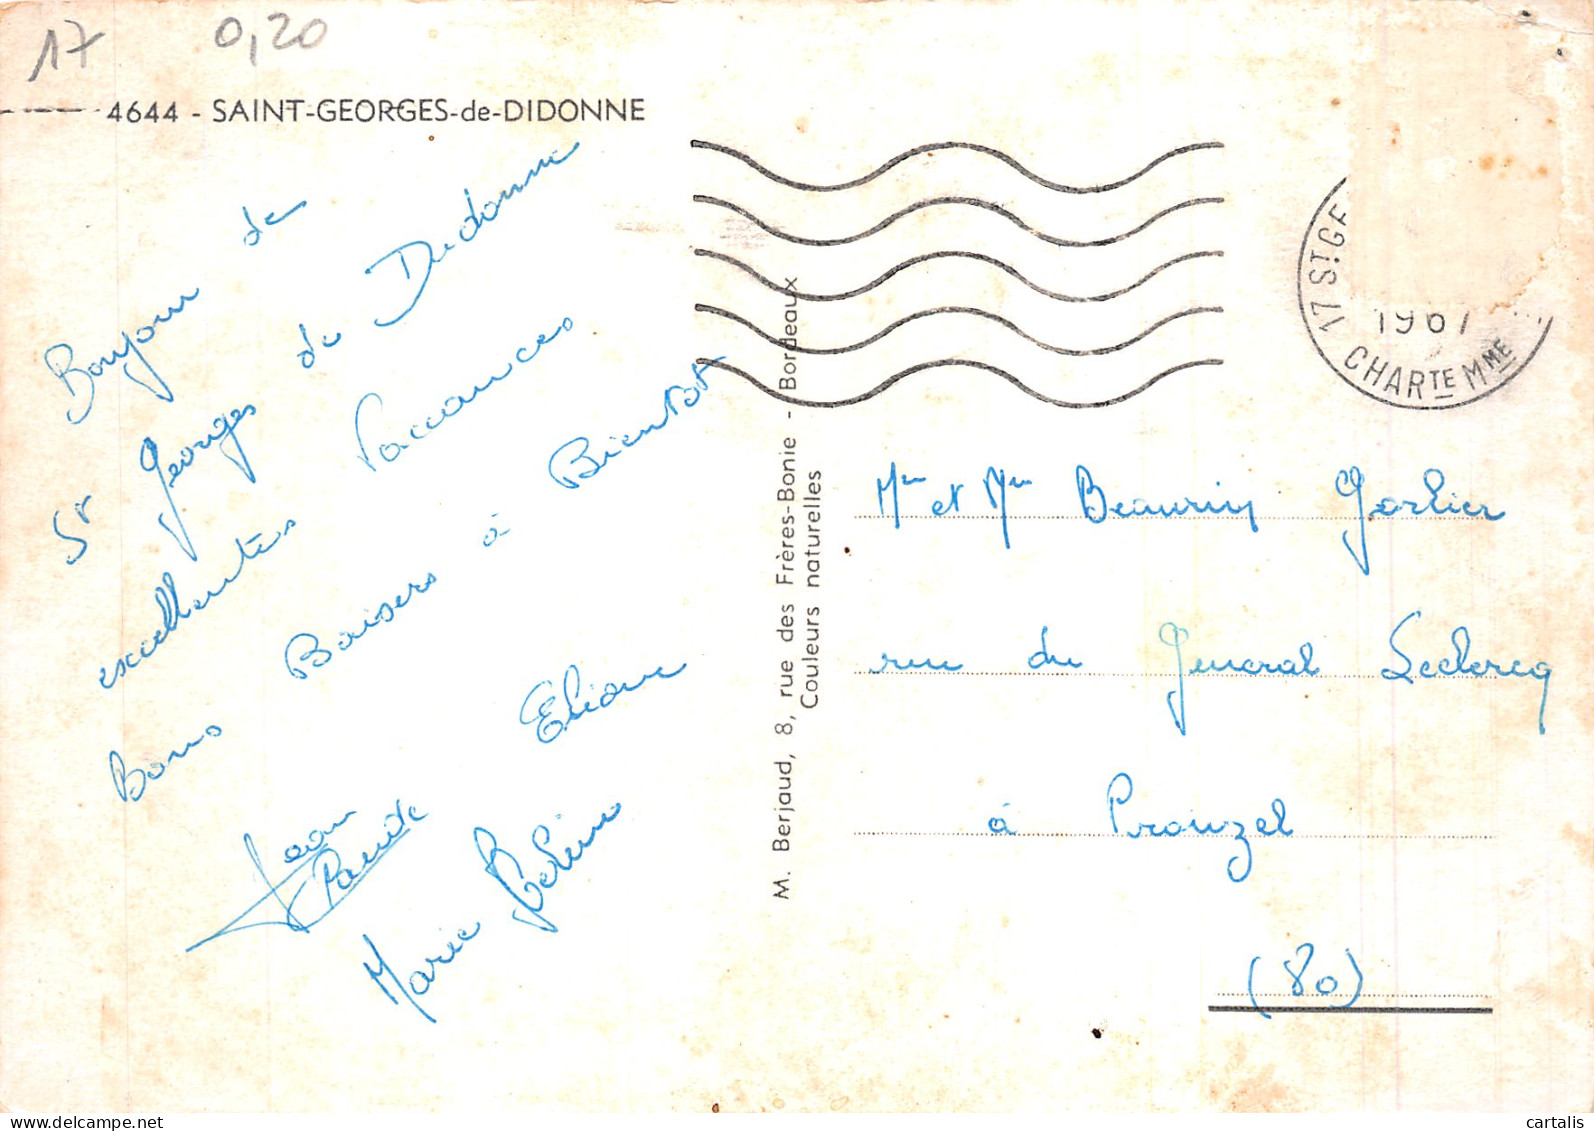 17 0,20
4644 - SAINT-GEORGES-de-DIDONNE
Bonjour de
St Georges de Didonne
excellentes Vaccances
Bons Baisers à Bientot
Eliane
Jean
Paulite
Marie
M. Berjaud, 8, rue des Frères-Bonie - Bordeaux
Couleurs naturelles
17 ST. GE
1967
CHARTE MME
Mr et Mme Beaurin Gorlier
rue du General Leclercq
à Prouzel
(80)
delcampe.net
cartalis